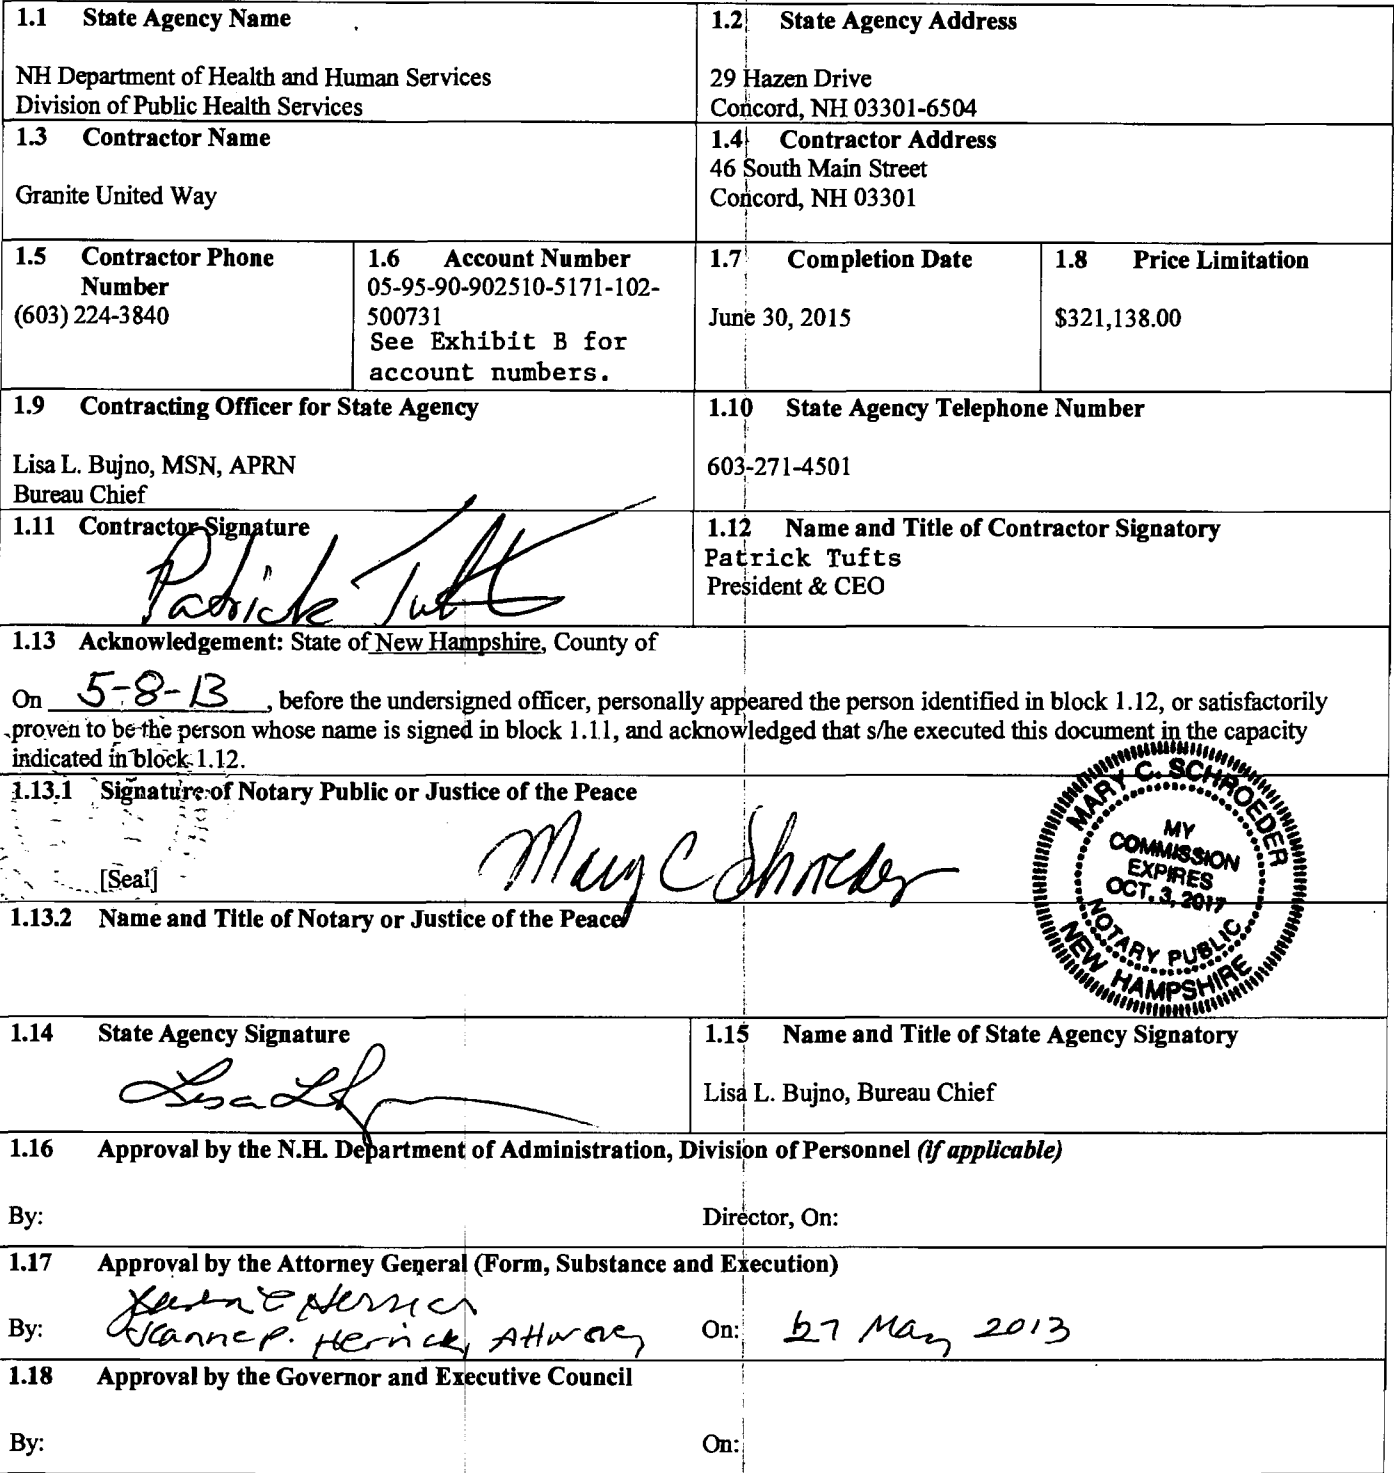 1.1 State Agency Name
NH Department of Health and Human Services
Division of Public Health Services
1.2 State Agency Address
29 Hazen Drive
Concord, NH 03301-6504
1.3 Contractor Name
Granite United Way
1.4 Contractor Address
46 South Main Street
Concord, NH 03301
1.5 Contractor Phone
Number
(603) 224-3840
1.6 Account Number
05-95-90-902510-5171-102-
500731
See Exhibit B for
account numbers.
1.7 Completion Date
June 30, 2015
1.8 Price Limitation
$321,138.00
1.9 Contracting Officer for State Agency
Lisa L. Bujno, MSN, APRN
Bureau Chief
1.10 State Agency Telephone Number
603-271-4501
1.11 Contractor Signature
Patrick Tufts
1.12 Name and Title of Contractor Signatory
Patrick Tufts
President & CEO
1.13 Acknowledgement: State of New Hampshire, County of
On 5-8-13, before the undersigned officer, personally appeared the person identified in block 1.12, or satisfactorily
proven to be the person whose name is signed in block 1.11, and acknowledged that s/he executed this document in the capacity
indicated in block 1.12.
1.13.1 Signature of Notary Public or Justice of the Peace
Mary C Schroeder
[Seal]
MARY C. SCHROEDER
MY
COMMISSION
EXPIRES
OCT. 3, 2017
NOTARY PUBLIC
NEW HAMPSHIRE
1.13.2 Name and Title of Notary or Justice of the Peace
1.14 State Agency Signature
Lisa L
1.15 Name and Title of State Agency Signatory
Lisa L. Bujno, Bureau Chief
1.16 Approval by the N.H. Department of Administration, Division of Personnel (if applicable)
By:
Director, On:
1.17 Approval by the Attorney General (Form, Substance and Execution)
Herrick
By: Jeanne P. Herrick, Attorney
On: 27 May 2013
1.18 Approval by the Governor and Executive Council
By:
On: